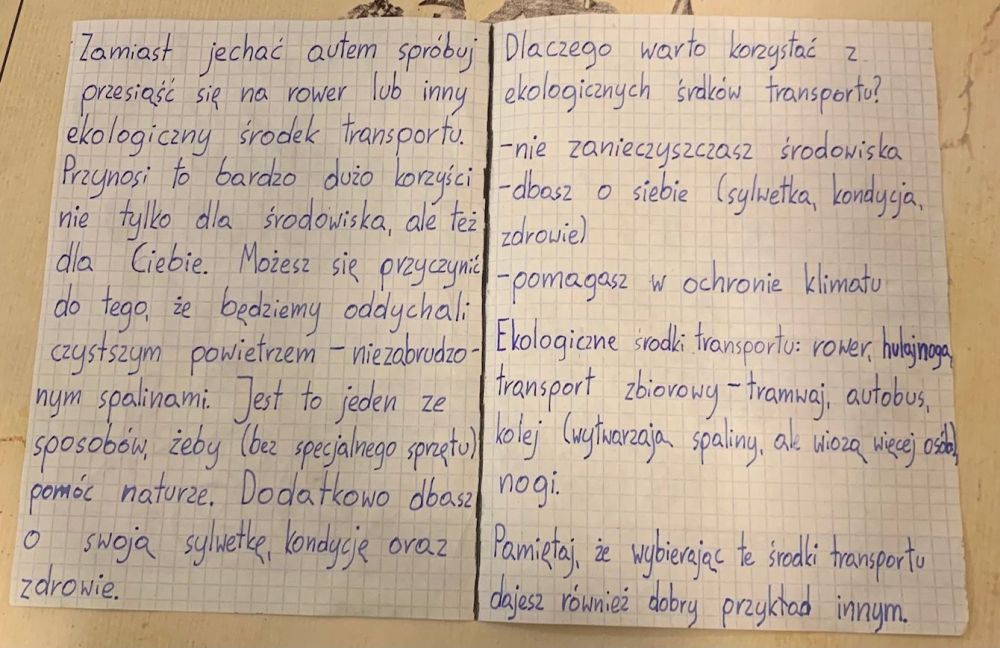 Zamiast jechać autem spróbuj
przesiąść się na rower lub inny
ekologiczny środek transportu.
Przynosi to bardzo dużo korzyści
nie tylko dla środowiska, ale też
dla Ciebie. Możesz się przyczynić
do tego, że będziemy oddychali
czystszym powietrzem – niezabrudzo-
nym spalinami. Jest to jeden ze
sposobów, żeby (bez specjalnego sprzętu)
pomóc naturze. Dodatkowo dbasz
o swoją sylwetkę, kondycję oraz
zdrowie.
Dlaczego warto korzystać z
ekologicznych śrdków transportu?
-nie zanieczyszczasz środowiska
-dbasz o siebie (sylwetka, kondycja,
zdrowie)
-pomagasz w ochronie klimatu
Ekologiczne środki transportu: rower, hulajnoga,
transport zbiorowy – tramwaj, autobus,
kolej (wytwarzają spaliny, ale wiozą więcej osób),
nogi.
Pamiętaj, że wybierając te środki transportu
dajesz również dobry przykład innym.